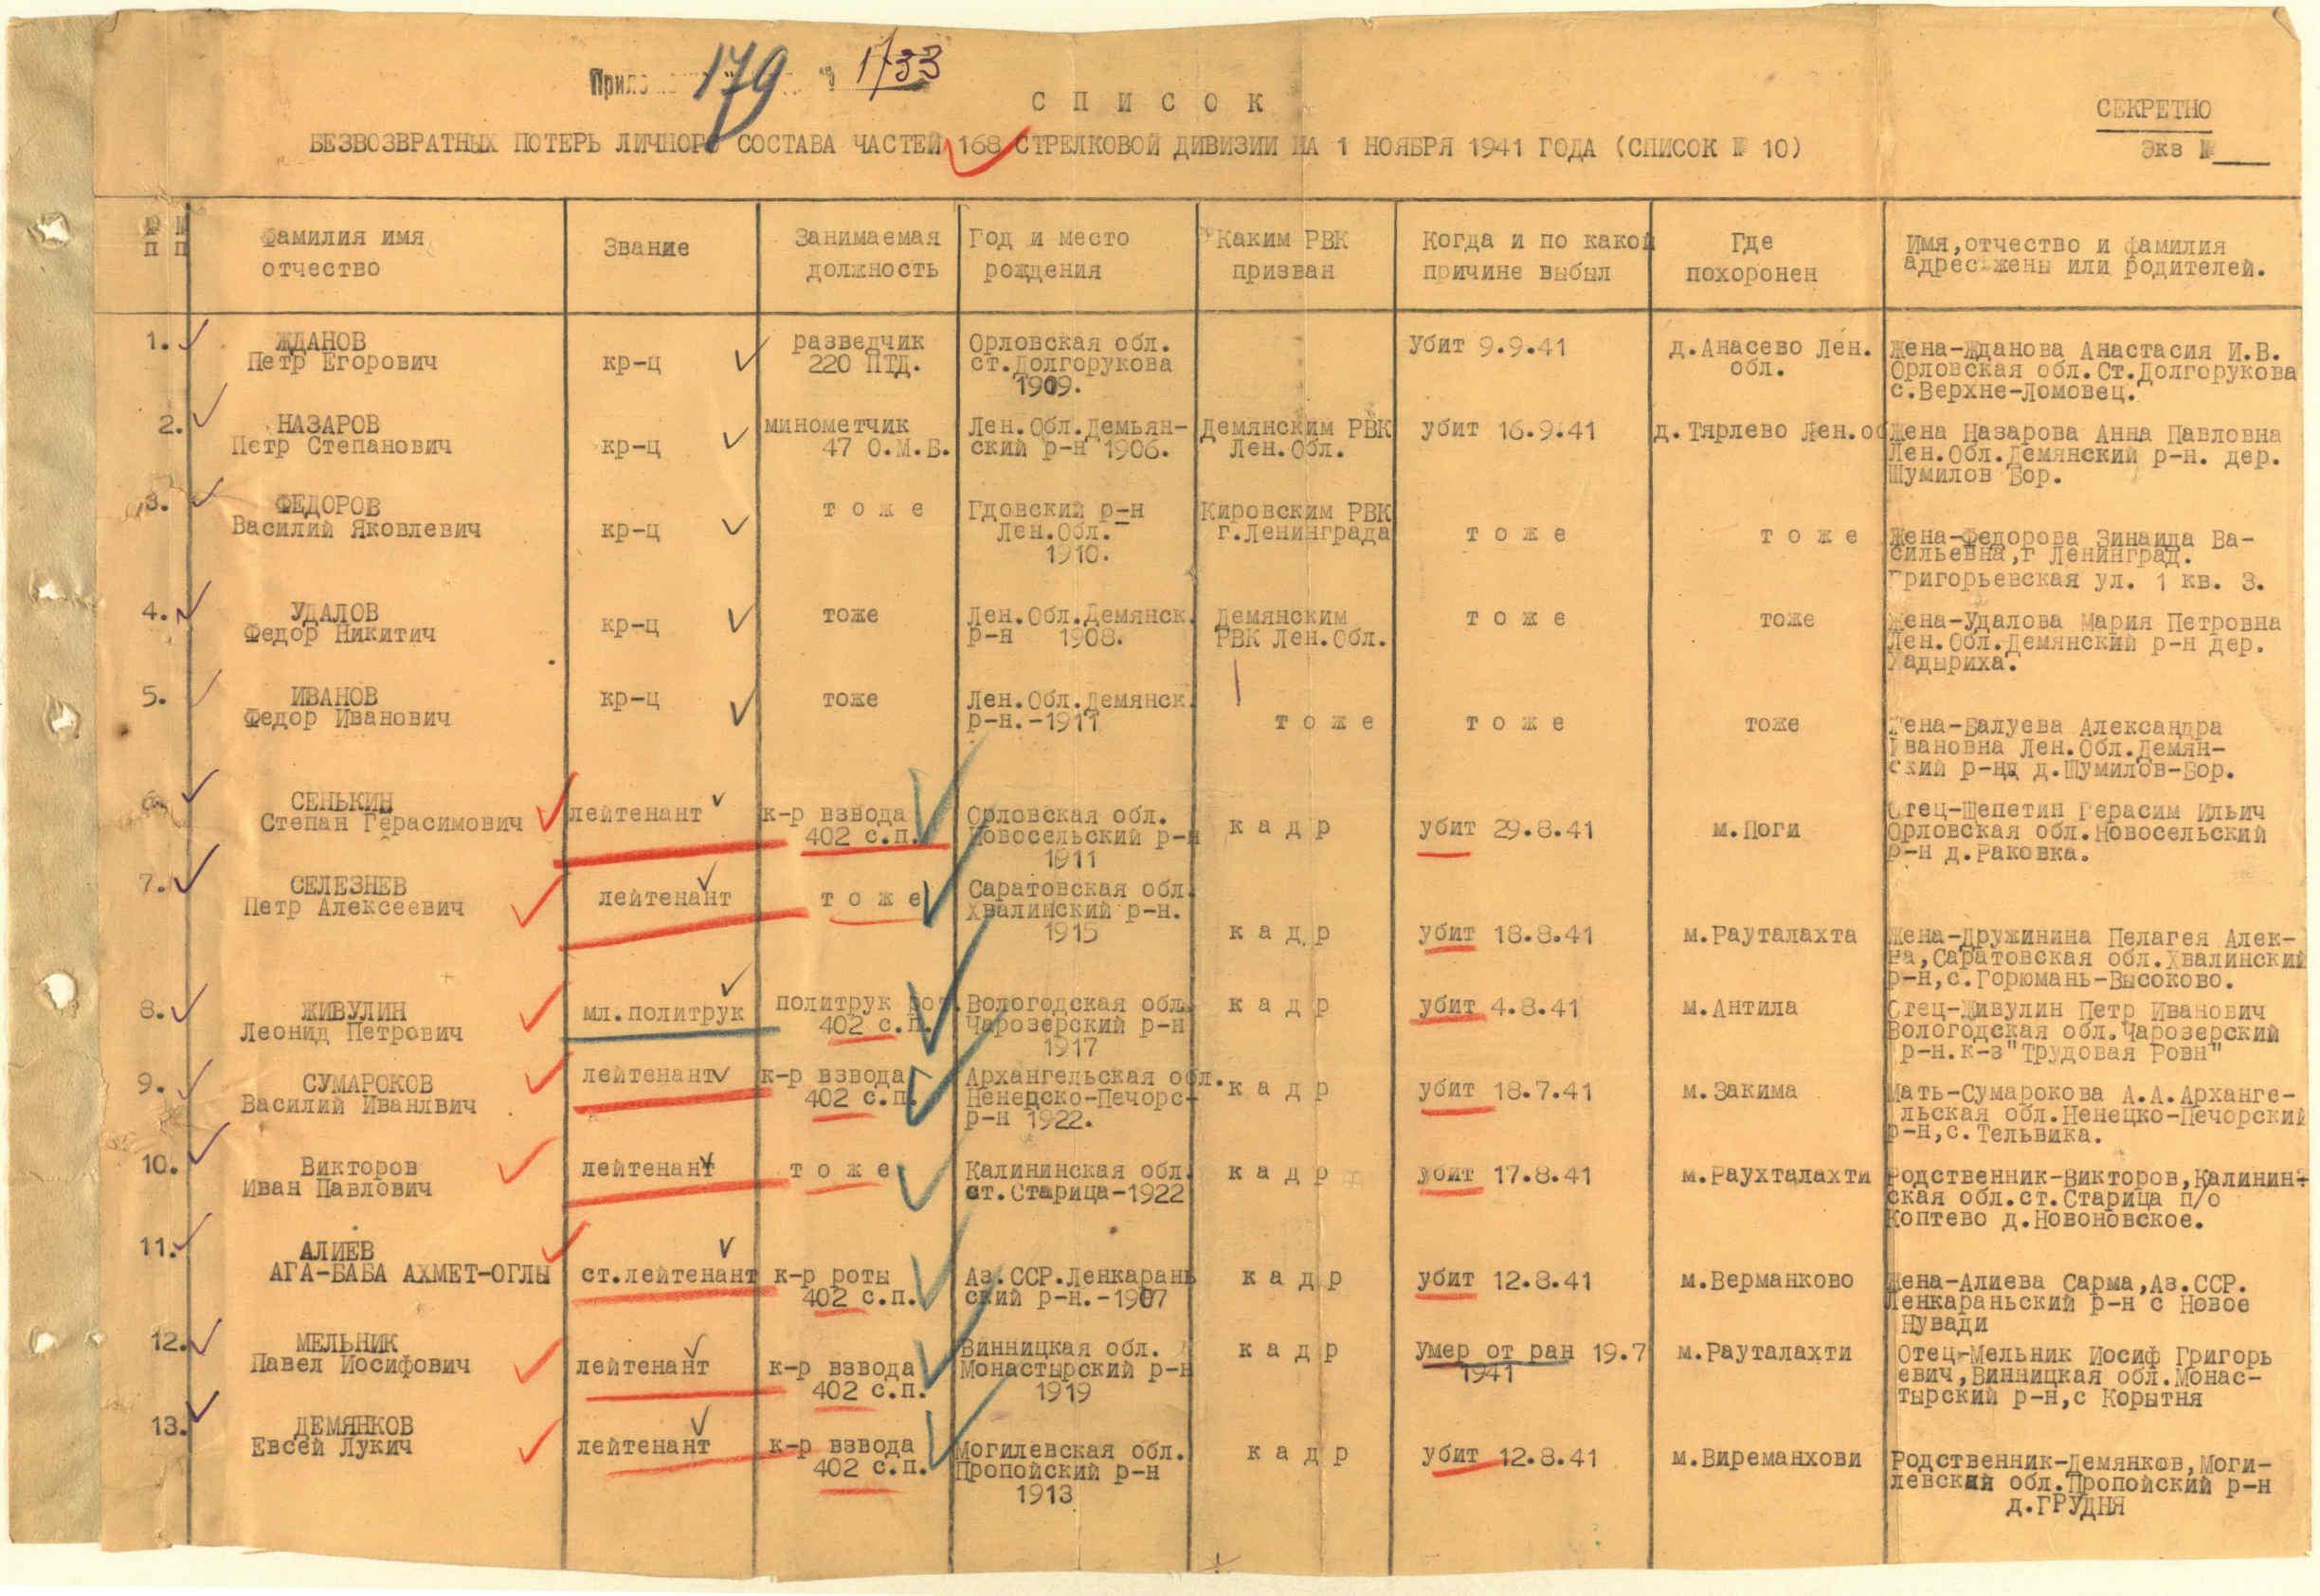 179 1733
СПИСОК
СЕКРЕТНО
БЕЗВОЗВРАТНЫХ ПОТЕРЬ ЛИЧНОГО СОСТАВА ЧАСТЕЙ 168 СТРЕЛКОВОЙ ДИВИЗИИ НА 1 НОЯБРЯ 1941 ГОДА (СПИСОК № 10)
Экз №
№ №
п п
Фамилия имя
отчество
Звание
Занимаемая
должность
Год и место
рождения
Каким РВК
призван
Когда и по какой
причине выбыл
Где
похоронен
Имя, отчество и фамилия
адрес жены или родителей.
1.
ЖДАНОВ
Петр Егорович
кр-ц
разведчик
220 ПТД.
Орловская обл.
ст.Долгорукова
1909.
Убит 9.9.41
д.Анасево Лен.
обл.
Жена-Жданова Анастасия И.В.
Орловская обл.Ст.Долгорукова
с.Верхне-Ломовец.
2.
НАЗАРОВ
Петр Степанович
кр-ц
минометчик
47 О.М.Б.
Лен.Обл.Демьян-
ский р-н 1906.
Демянским РВК
Лен.Обл.
убит 16.9.41
д.Тярлево Лен.об
Жена Назарова Анна Павловна
Лен.Обл.Демянский р-н. дер.
Шумилов Бор.
3.
ФЕДОРОВ
Василий Яковлевич
кр-ц
тоже
Гдовский р-н
Лен.Обл.
1910.
Кировским РВК
г.Ленинграда
тоже
тоже
Жена-Федорова Зинаида Ва-
сильевна,г Ленинград.
Григорьевская ул. 1 кв. 3.
4.
УДАЛОВ
Федор Никитич
кр-ц
тоже
Лен.Обл.Демянск.
р-н 1908.
Демянским
РВК Лен.Обл.
тоже
тоже
Жена-Удалова Мария Петровна
Лен.Обл.Демянский р-н дер.
Хадыриха.
5.
ИВАНОВ
Федор Иванович
кр-ц
тоже
Лен.Обл.Демянск.
р-н.-1911
тоже
тоже
тоже
Жена-Балуева Александра
Ивановна Лен.Обл.Демян-
ский р-нд д.Шумилов-Бор.
6.
СЕНЬКИН
Степан Герасимович
лейтенант
к-р взвода
402 с.п.
Орловская обл.
Новосельский р-н
1911
кадр
убит 29.8.41
м.Поги
Отец-Щепетин Герасим Ильич
Орловская обл.Новосельский
р-н д.Раковка.
7.
СЕЛЕЗНЕВ
Петр Алексеевич
лейтенант
тоже
Саратовская обл.
Хвалинский р-н.
1915
кадр
убит 18.8.41
м.Рауталахта
Жена-Дружинина Пелагея Алек-
на,Саратовская обл.Хвалинский
р-н,с.Горюмань-Высоково.
8.
ЖИВУЛИН
Леонид Петрович
мл.политрук
политрук рот.
402 с.п.
Вологодская обл.
Чарозерский р-н
1917
кадр
убит 4.8.41
м.Антила
Отец-Живулин Петр Иванович
Вологодская обл.Чарозерский
р-н.к-з"Трудовая Ровн"
9.
СУМАРОКОВ
Василий Иванлвич
лейтенант
к-р взвода
402 с.п.
Архангельская обл.
Ненецско-Печорс-
р-н 1922.
кадр
убит 18.7.41
м.Закима
Мать-Сумарокова А.А.Арханге-
льская обл.Ненецко-Печорский
р-н,с.Тельвика.
10.
Викторов
Иван Павлович
лейтенант
тоже
Калининская обл.
ст.Старица-1922
кадр
убит 17.8.41
м.Раухталахти
Родственник-Викторов,Калинин-
ская обл.ст.Старица п/о
Коптево д.Новоновское.
11.
АЛИЕВ
АГА-БАБА АХМЕТ-ОГЛЫ
ст.лейтенант
к-р роты
402 с.п.
Аз.ССР.Ленкарань
ский р-н.-1907
кадр
убит 12.8.41
м.Верманково
Жена-Алиева Сарма,Аз.ССР.
Ленкараньский р-н с Новое
Нувади
12.
МЕЛЬНИК
Павел Иосифович
лейтенант
к-р взвода
402 с.п.
Винницкая обл.
Монастырский р-н
1919
кадр
Умер от ран 19.7
1941
м.Рауталахти
Отец-Мельник Иосиф Григорь
евич,Винницкая обл.Монас-
тырский р-н,с Корытня
13.
ДЕМЯНКОВ
Евсей Лукич
лейтенант
к-р взвода
402 с.п.
Могилевская обл.
Пропойский р-н
1913
кадр
убит 12.8.41
м.Виреманхови
Родственник-Демянков,Моги-
левская обл.Пропойский р-н
д.ГРУДНЯ